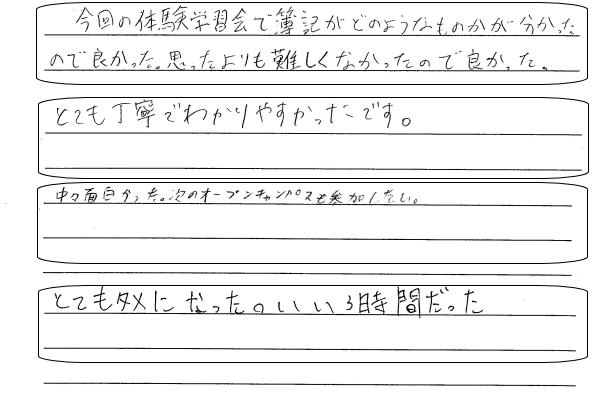 今回の体験学習会で簿記がどのようなものかが分かった
ので良かった。思ったよりも難しくなかったので良かった。
とても丁寧でわかりやすかったです。
中々面白かった。次のオープンキャンパスも参加したい。
とてもタメになった。いい3時間だった